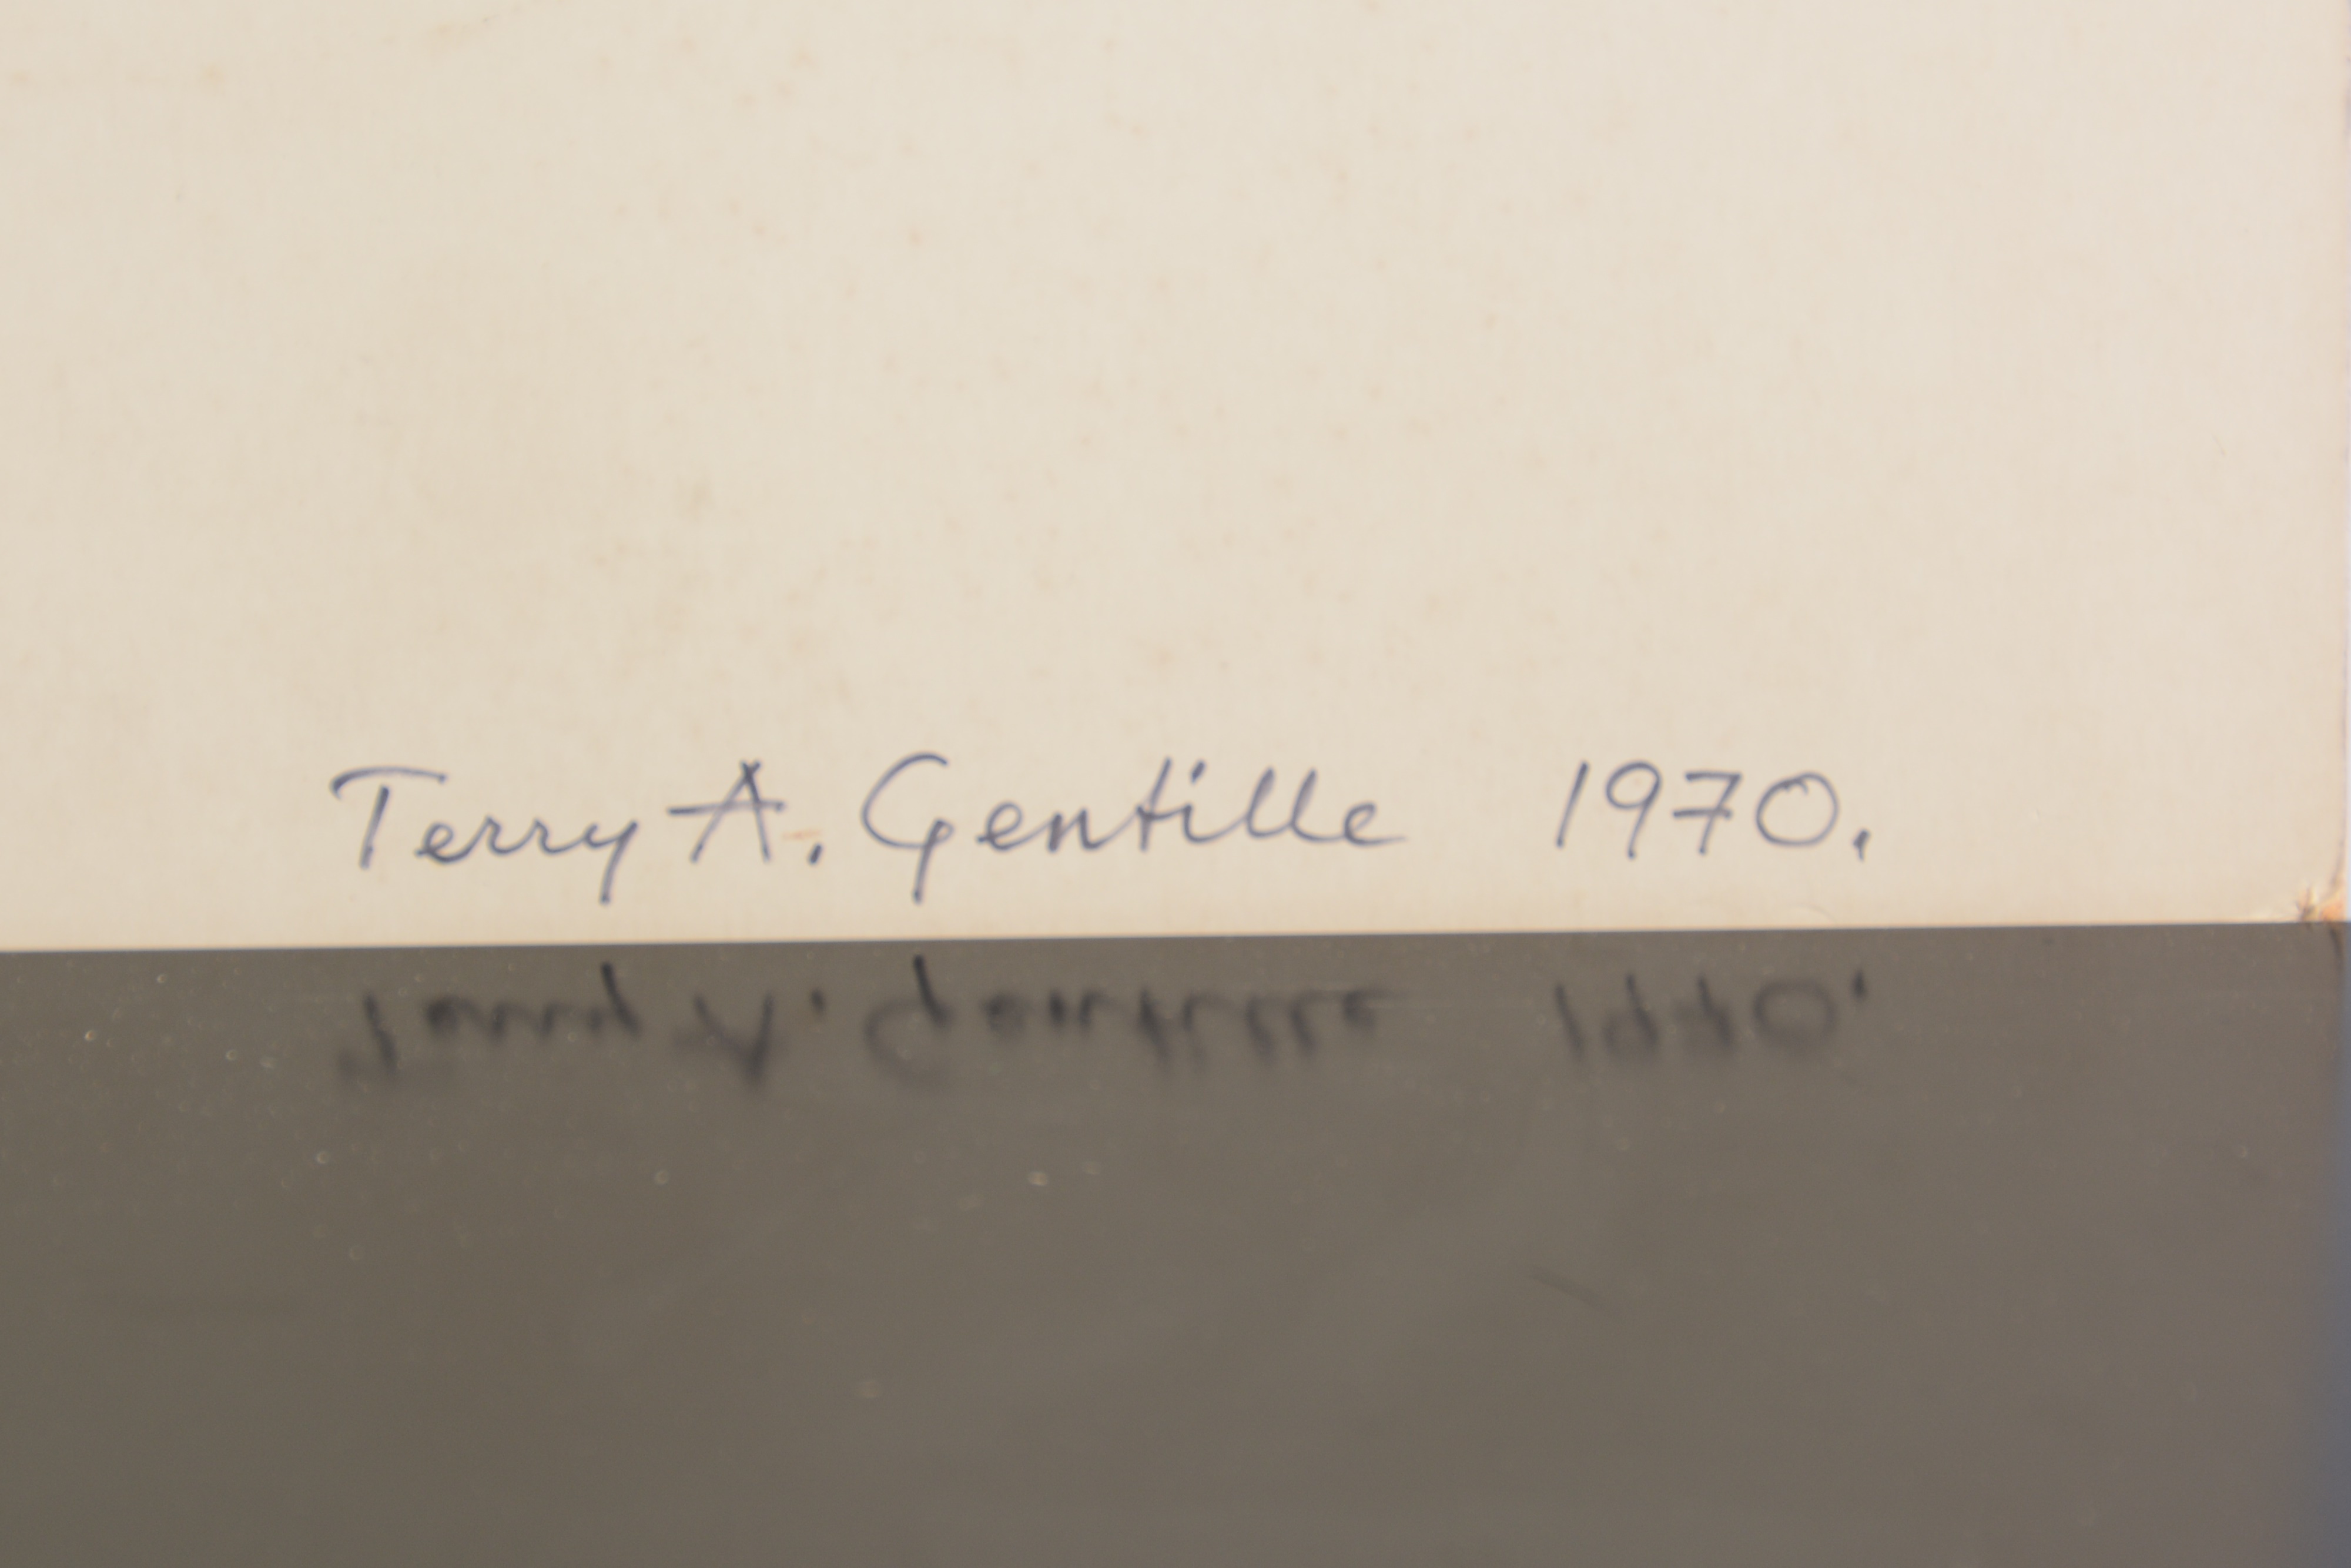 Terry A. Gentille 1970.